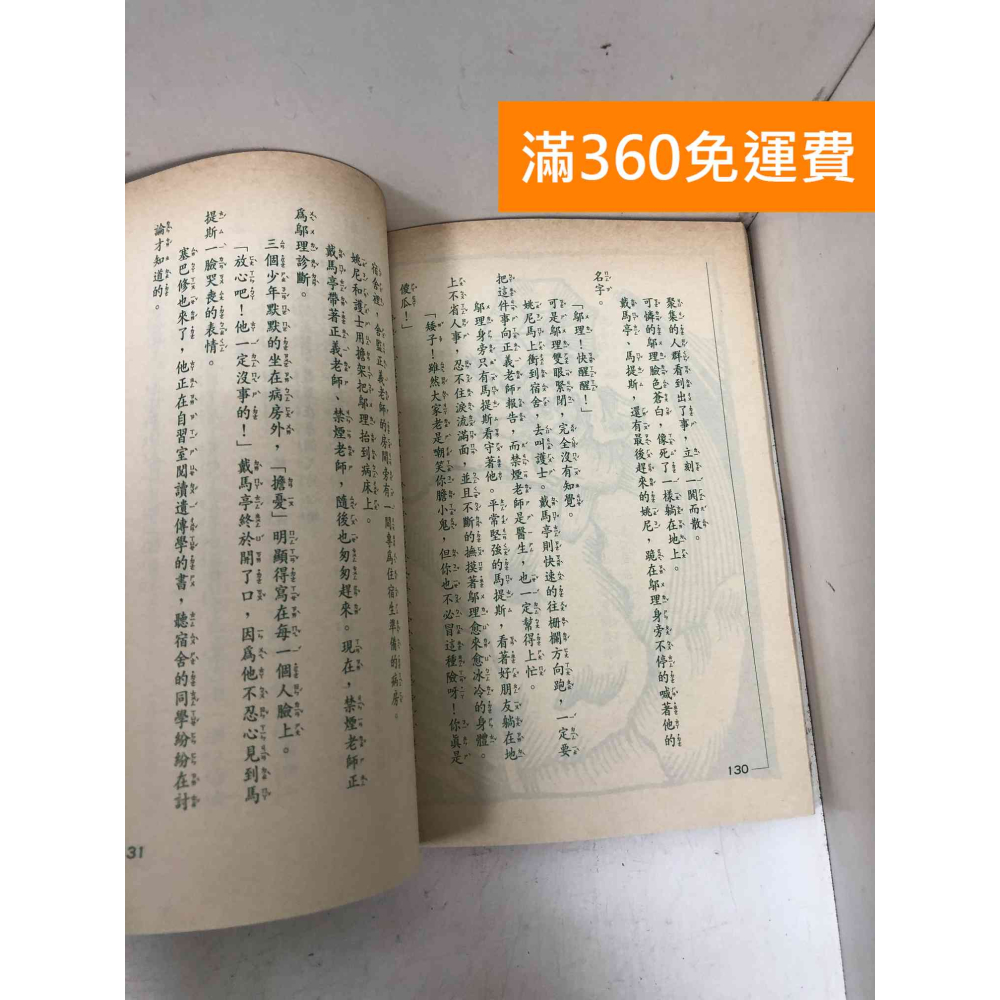 滿360免運費
聚集的人群看到出了事，立刻一鬨而散。
可憐的鄔理臉色蒼白，像死了一樣躺在地上。
戴馬亭、馬提斯，還有最後趕來的姚尼，跪在鄔理身旁不停的喊著他的
名字。
「鄔理！快醒醒！」
可是鄔理雙眼緊閉，完全沒有知覺。
姚尼馬上衝到宿舍，去叫護士。戴馬亭則快速的往柵欄方向跑，一定要
把這件事向正義老師報告，而禁煙老師是醫生，也一定幫得上忙。
鄔理身旁只有馬提斯看守著他。平常堅強的馬提斯，看著好朋友躺在地
上不省人事，忍不住淚流滿面，並且不斷的撫摸著鄔理愈來愈冰冷的身體。
「矮子！雖然大家老是嘲笑你膽小鬼，但你也不必冒這種險呀！你真是
傻瓜！」
130
宿舍裡，舍監正義老師的房間旁有一間專為住宿生準備的病房。
姚尼和護士用擔架把鄔理抬到病床上。
戴馬亭帶著正義老師、禁煙老師，隨後也匆匆趕來。現在，禁煙老師正
為鄔理診斷。
三個少年默默的坐在病房外，「擔憂」明顯得寫在每一個人臉上。
「放心吧！他一定沒事的！」戴馬亭終於開了口，因為他不忍心見到馬
提斯一臉哭喪的表情。
塞巴修也來了，他正在自習室閱讀遺傳學的書，聽宿舍的同學紛紛在討
論才知道的。
31